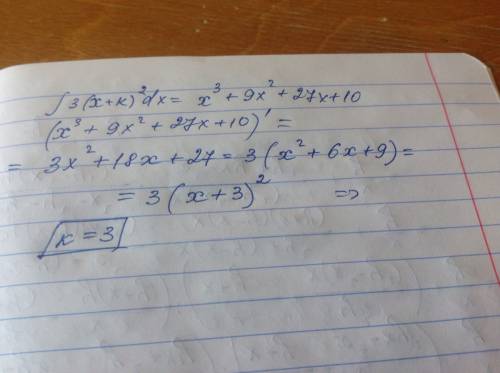 ∫3(x+к)²dx = x³ + 9x² + 27x + 10
(x³ + 9x² + 27x + 10)' =
= 3x² + 18x + 27 = 3(x² + 6x + 9) =
= 3(x+3)² =>
к = 3